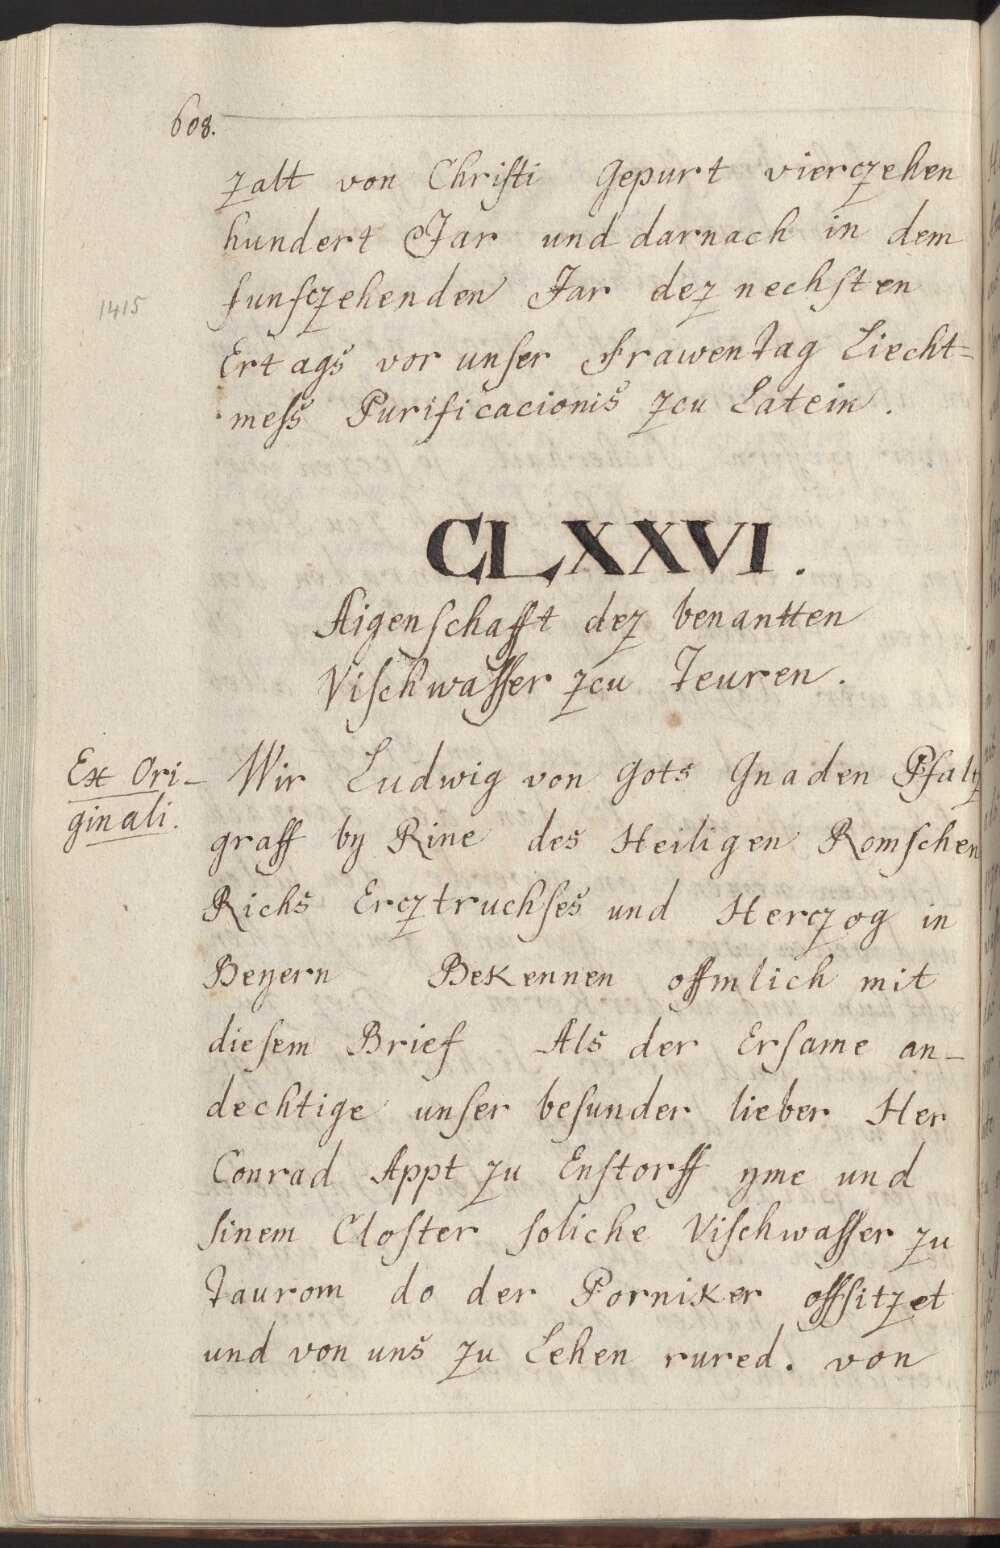 608.
zalt von Christi Gepurt vierczehen
hundert Jar und darnach in dem
1415
funfczehenden Jar dez nechsten
Ertags vor unser Frawentag Liecht=
mess Purificacionis zcu Latein.
CLXXVI.
Aigenschafft dez benantten
Vischwasser zcu Teuren.
Ex Ori-
ginali.
Wir Ludwig von Gots Gnaden Pfaltz
graff by Rine des Heiligen Romschen
Richs Ercztruchses und Herczog in
Beyern Bekennen offinlich mit
diesem Brief Als der Ersame an-
dechtige unser besunder lieber Her
Conrad Appt zu Enstorff yme und
sinem Closter soliche Vischwasser zu
Taurom do der Porniker offsitzet
und von uns zu Lehen rured. von